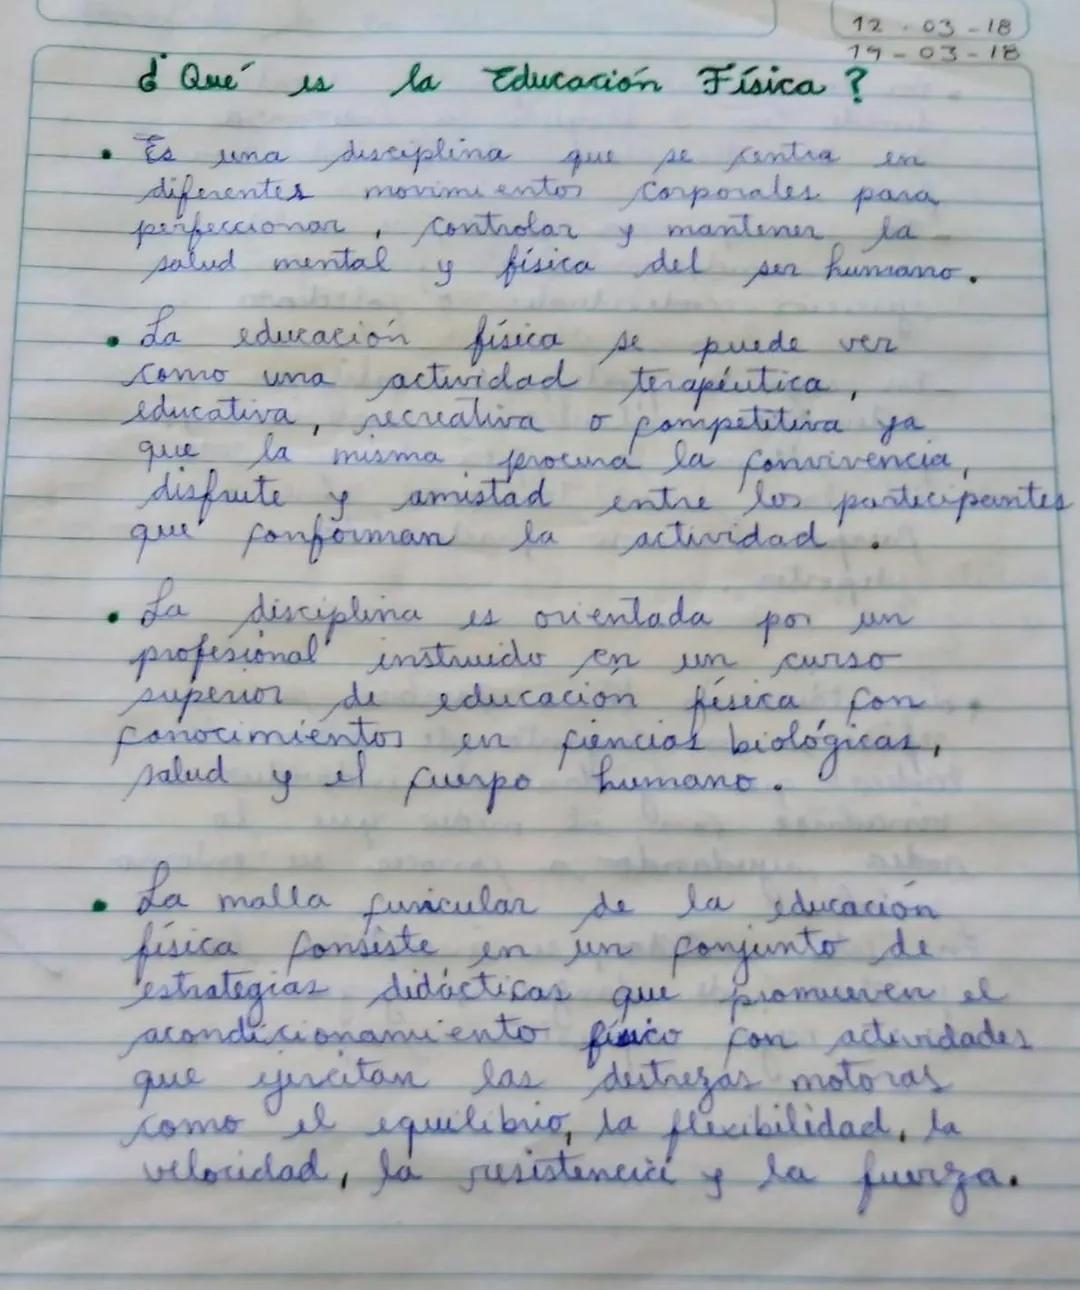 12-03-18
19-03-18
¿Qué es la Educación Física?
• Es una disciplina que se centra en
diferentes movimientos corporales para
perfeccionar, controlar y mantener la
salud mental y física del ser humano.
• La educación física se puede ver
como una actividad terapéutica,
educativa, recreativa o competitiva ya
que la misma procura la convivencia,
disfrute y amistad entre los participantes
que conforman la actividad.
• La disciplina es orientada por un
profesional instruido en un curso
superior de educación física con
conocimientos en ciencias biológicas,
salud y el cuerpo humano.
• La malla curricular de la educación
física consiste en un conjunto de
estrategias didácticas que promueven el
acondicionamiento físico con actividades
que ejercitan las destrezas motoras
como el equilibrio, la flexibilidad, la
velocidad, la resistencia y la fuerza.